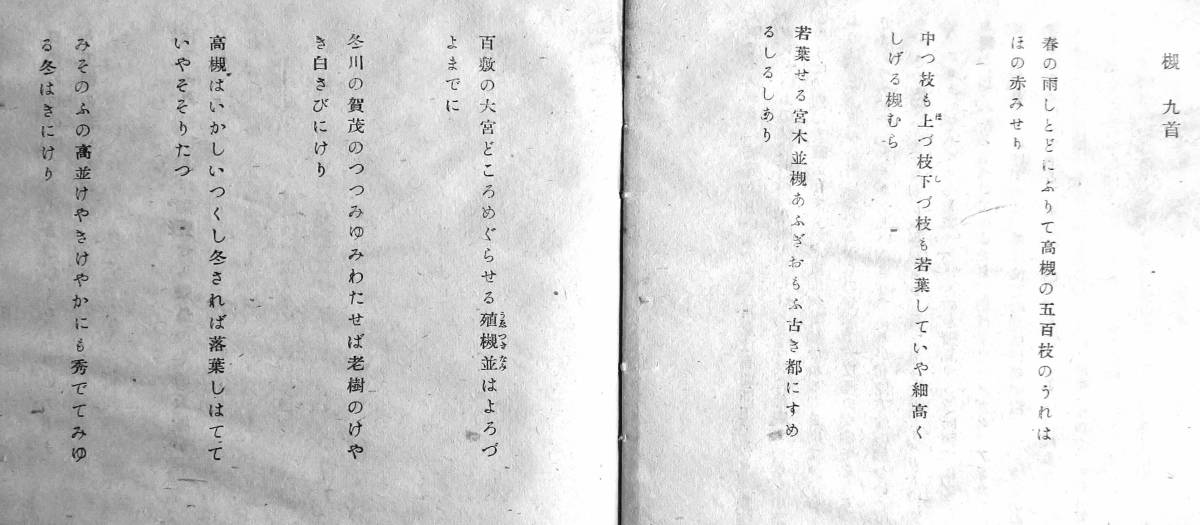 槻 九首
春の雨しとどにふりて高槻の五百枝のうれは
ほの赤みせり
中つ枝も上づ枝下づ枝も若葉していや細高く
しげる槻むら
若葉せる宮木並槻あふぎおもふ古き都にすめ
るしるしあり
百敷の大宮どころめぐらせる殖槻並はよろづ
よまでに
冬川の賀茂のつつみゆみわたせば老樹のけや
き白さびにけり
高槻はいかしいつくし冬されば落葉しはてて
いやそそりたつ
みそのふの高並けやきけやかにも秀でてみゆ
る冬はきにけり